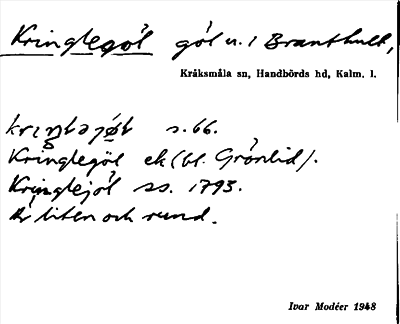 Kringlegöl göl u. i Branthult,
Kråksmåla sn, Handbörds hd, Kalm. l.
s. 66.
Kringlegöl ek (bl. Grönlid).
Kringlejöl ss. 1793.
Är liten och rund.
Ivar Modéer 1948